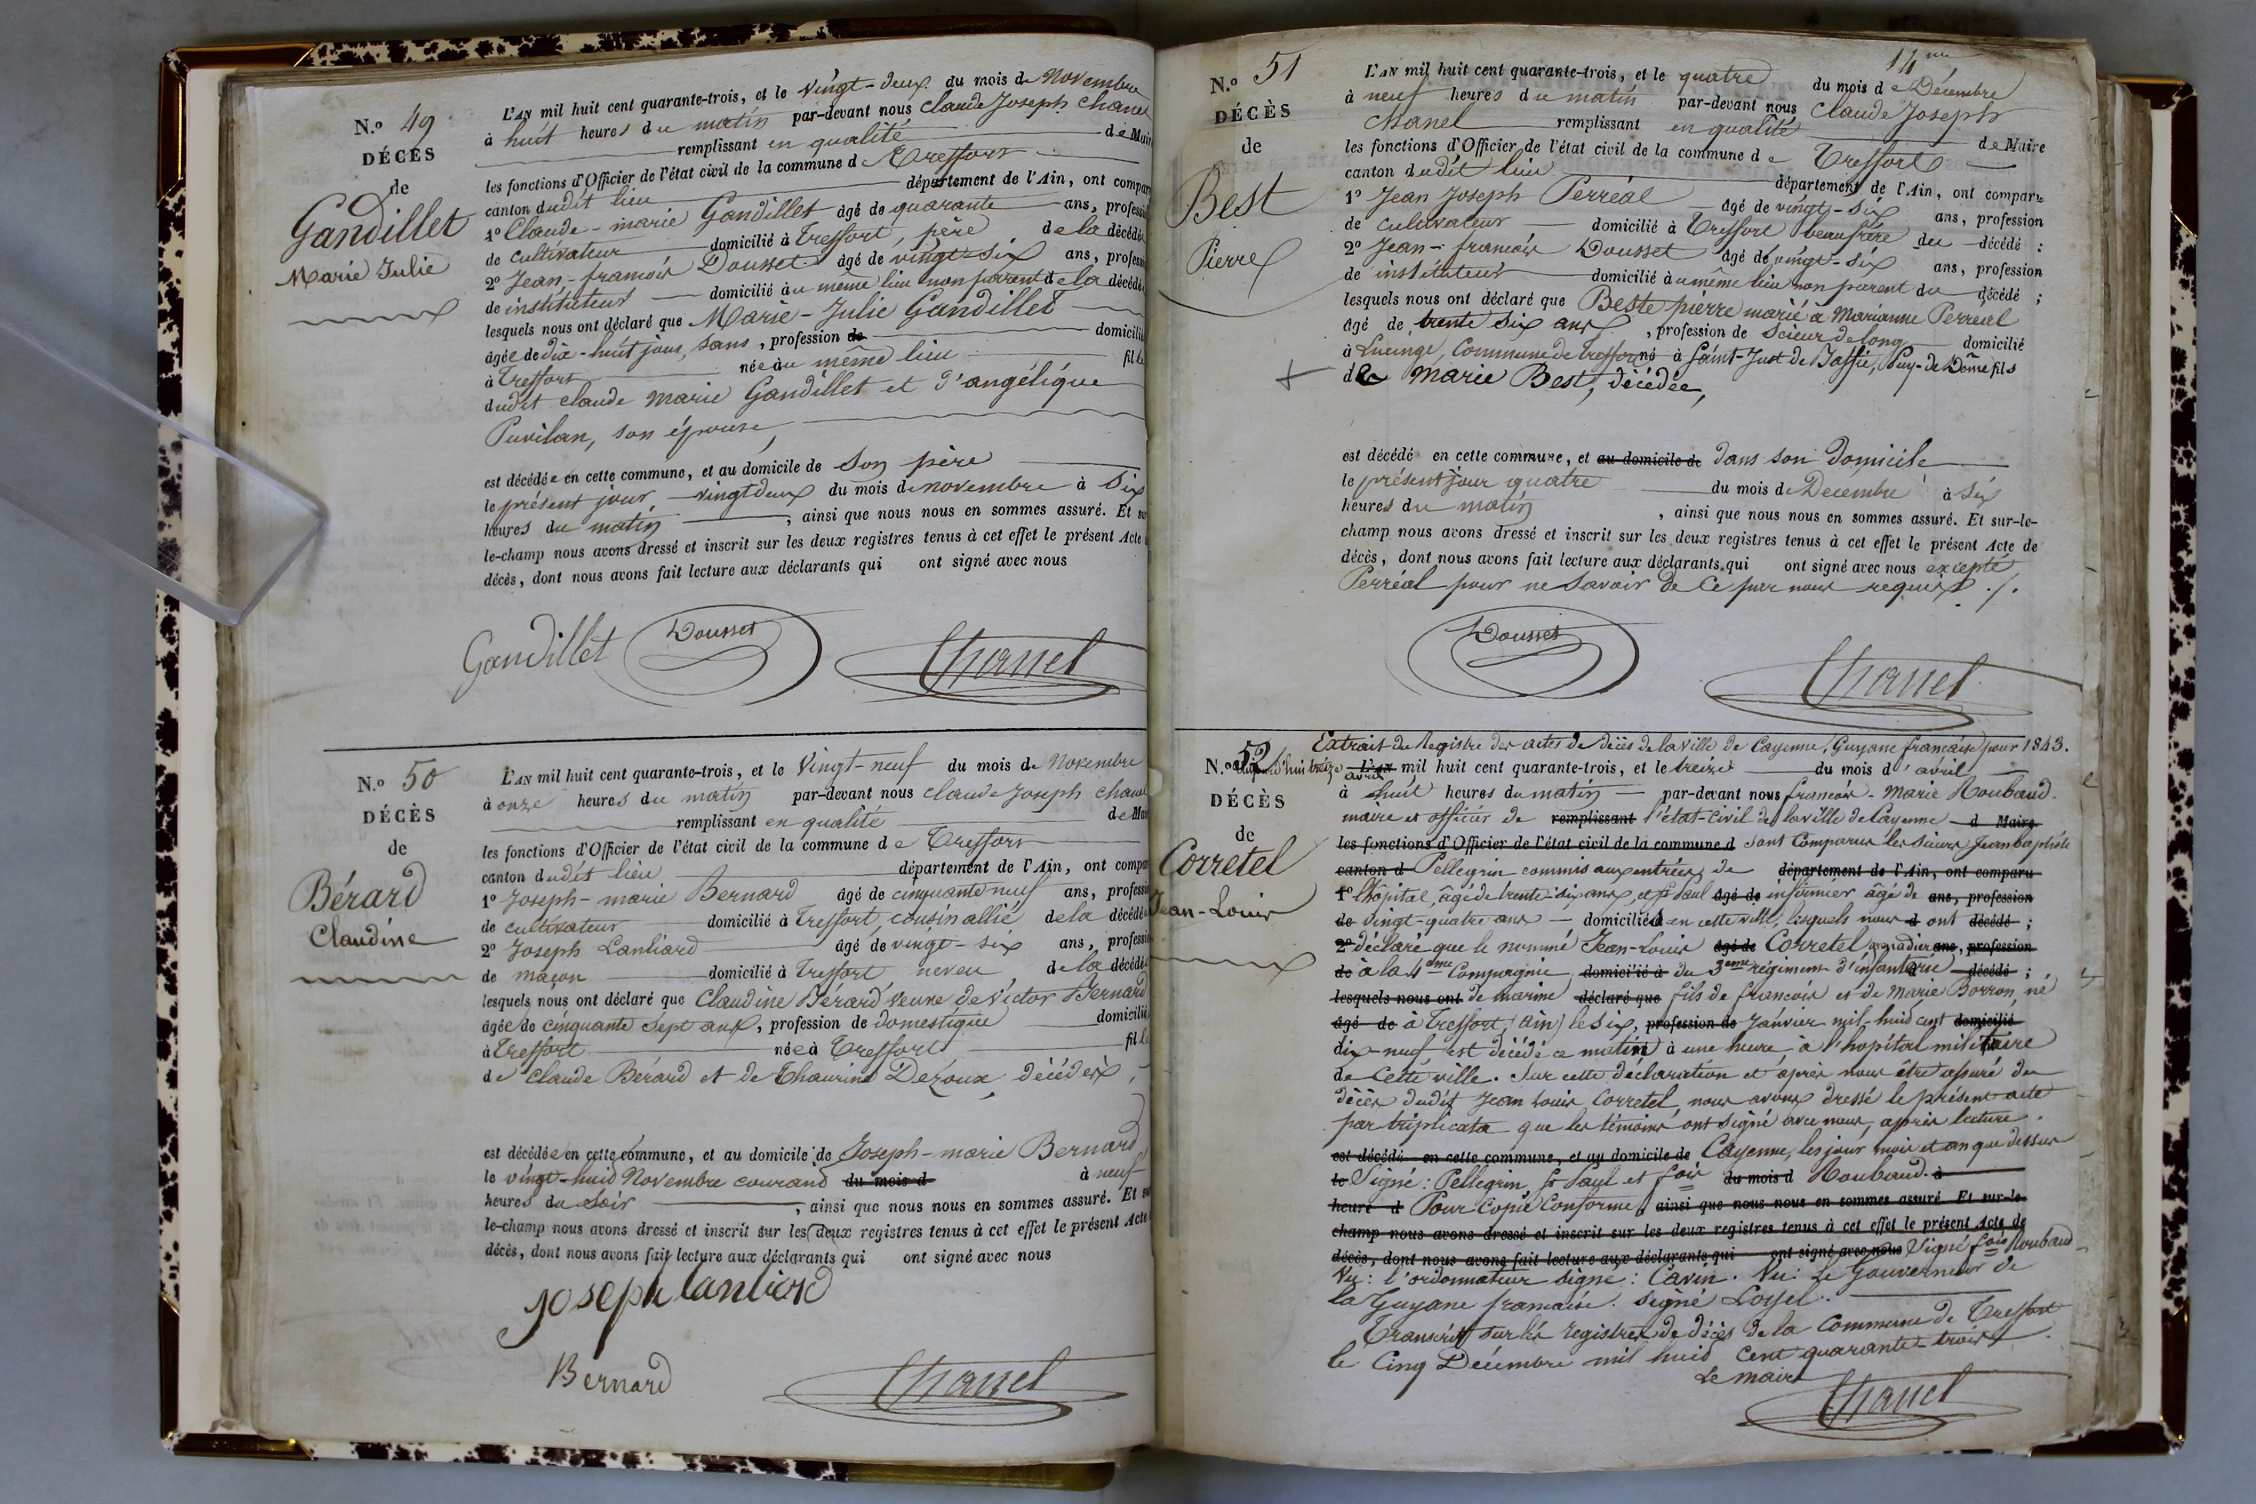 N.º 49
DÉCÈS
de
Gandillet
Marie Julie
L'AN mil huit cent quarante-trois, et le vingt-deux du mois de Novembre
à huit heures du matin par-devant nous Claude Joseph Chanel
remplissant en qualité de Mair
les fonctions d'Officier de l'état civil de la commune de Treffort
canton dudit lieu département de l'Ain, ont compar
1º Claude-marie Gandillet âgé de quarante ans, professi
de cultivateur domicilié à Treffort, père de la décédée
2º Jean-francois Dousset âgé de vingt-six ans, profess
de instituteur domicilié au même lieu non parent de la décédé
lesquels nous ont déclaré que Marie-Julie Gandillet
âgée de dix-huit jours, sans, profession de domicili
à Treffort née au même lieu fille
dudit Claude Marie Gandillet et d'angélique
Puvilan, son épouse,
est décédée en cette commune, et au domicile de son père
le présent jour vingt deux du mois de novembre à six
heures du matin, ainsi que nous nous en sommes assuré. Et sur
le-champ nous avons dressé et inscrit sur les deux registres tenus à cet effet le présent Acte
décès, dont nous avons fait lecture aux déclarants qui ont signé avec nous
Gandillet Dousset Chanel
N.º 50
DÉCÈS
de
Bérard
Claudine
L'AN mil huit cent quarante-trois, et le Vingt-neuf du mois de Novembre
à onze heures du matin par-devant nous Claude Joseph Chanel
remplissant en qualité de Mai
les fonctions d'Officier de l'état civil de la commune de Treffort
canton dudit lieu département de l'Ain, ont compar
1º Joseph-marie Bernard âgé de cinquante neuf ans, professi
de cultivateur domicilié à Treffort, cousin allié de la décédé
2º Joseph Lanliard âgé de vingt-six ans, professi
de maçon domicilié à Treffort neveu de la décédé
lesquels nous ont déclaré que Claudine Bérard veuve de Victor Bernard
âgée de cinquante sept ans, profession de domestique domicilié
à Treffort née à Treffort fille
de Claude Bérard et de Thaurine Deroux, décédés,
est décédée en cette commune, et au domicile de Joseph-marie Bernard
le vingt-huit Novembre courand du mois d à neuf
heures du soir, ainsi que nous nous en sommes assuré. Et su
le-champ nous avons dressé et inscrit sur les deux registres tenus à cet effet le présent Acte
décès, dont nous avons fait lecture aux déclarants qui ont signé avec nous
joseph lanliard
Bernard Chanel
N.º 51
DÉCÈS
de
Best
Pierre
L'AN mil huit cent quarante-trois, et le quatre du mois de Décembre
à neuf heures du matin par-devant nous Claude Joseph
Chanel remplissant en qualité de Maire
les fonctions d'Officier de l'état civil de la commune de Treffort
canton dudit lieu département de l'Ain, ont comparu
1º Jean Joseph Perréal âgé de vingt-six ans, profession
de cultivateur domicilié à Treffort beaufrère du décédé :
2º Jean-francois Dousset âgé de vingt-six ans, profession
de instituteur domicilié au même lieu non parent du décédé ;
lesquels nous ont déclaré que Beste pierre marié à Marianne Perreal
âgé de trente six ans, profession de Scieur de long domicilié
à Lucinge, Commune de treffort né à Saint-Just de Baffie, Puy-de-Dôme fils
de Marie Best, décédée,
est décédé en cette commune, et au domicile de dans son Domicile
le présent jour quatre du mois de Decembre à six
heures du matin, ainsi que nous nous en sommes assuré. Et sur-le-
champ nous avons dressé et inscrit sur les deux registres tenus à cet effet le présent Acte de
décès, dont nous avons fait lecture aux déclarants qui ont signé avec nous excepté
Perreal pour ne savoir de ce par nous requis ./.
Dousset Chanel
N.º 52
DÉCÈS
de
Corretel
Jean-Louis
Extrait du Registre des actes de décès de la ville de Cayenne, (Guyane francaise) pour 1843.
aujourd'hui treize avril L'AN mil huit cent quarante-trois, et le treize du mois d'avril
à huit heures du matin par-devant nous francois-Marie Roubaud
maire et officier de remplissant l'état-civil de la ville de Cayenne d Maire
les fonctions d'Officier de l'état civil de la commune d sont Comparus les sieurs Jean baptiste
canton d Pellegrin commis aux entrées de département de l'Ain, ont comparu
1º l'hôpital, âgé de trente-six ans, et Paul âgé de infirmier âgé de ans, profession
de vingt-quatre ans domiciliés en cette ville, lesquels nous d ont décédé ;
2º déclaré que le nommé Jean-Louis âgé de Corretel grenadier ans, profession
de à la 4eme Compagnie domicilié à du 3eme régiment d'infanterie décédé ;
lesquels nous ont de marine déclaré que fils de francois et de Marie Borron, né
âgé de à Treffort, (Ain) le six, profession de Janvier mil-huit cent domicilié
dix-neuf est décédé ce matin à une heure à l'hopital militaire
de cette ville. Sur cette déclaration et après nous être assuré du
décès dudit Jean Louis Corretel, nous avons dressé le présent acte
par triplicata que les témoins ont signé avec nous, après lecture.
est décédé en cette commune, et au domicile de Cayenne, les jour, mois et an que dessus
le Signé : Pellegrin, Paul et fois du mois d Roubaud. à
heure d Pour Copie Conforme, ainsi que nous nous en sommes assuré Et sur-le-
champ nous avons dressé et inscrit sur les deux registres tenus à cet effet le présent Acte de
décès, dont nous avons fait lecture aux déclarants qui ont signé avec nous Signé fois Roubaud
Vu : l'ordonnateur signé : Cavin. Vu : Le Gouverneur de
la Guyane francaise. signé Loyel.
Transcrit sur les registres de décès de la Commune de Treffort
le Cinq Décembre mil huit cent quarante-trois
Le maire
Chanel